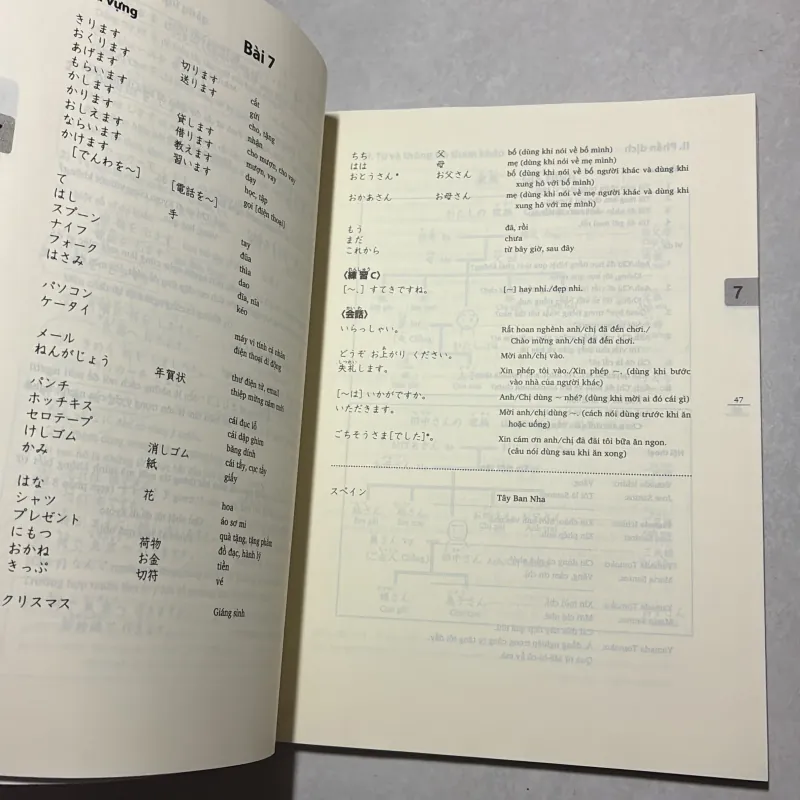 vựng
Bài 7
きります 切ります cắt
おくります 送ります gửi
あげます cho, tặng
もらいます nhận
かします 貸します cho mượn, cho vay
かります 借ります mượn, vay
おしえます 教えます dạy
ならいます 習います học, tập
かけます
[でんわを～] [電話を～] gọi [điện thoại]
て 手 tay
はし đũa
スプーン thìa
ナイフ dao
フォーク dĩa, nĩa
はさみ kéo
パソコン máy vi tính cá nhân
ケータイ điện thoại di động
メール thư điện tử, email
ねんがじょう 年賀状 thiệp mừng năm mới
パンチ cái đục lỗ
ホッチキス cái dập ghim
セロテープ băng dính
けしゴム 消しゴム cái tẩy, cục tẩy
かみ 紙 giấy
はな 花 hoa
シャツ áo sơ mi
プレゼント quà tặng, tặng phẩm
にもつ 荷物 đồ đạc, hành lý
おかね お金 tiền
きっぷ 切符 vé
クリスマス Giáng sinh
ちち 父 bố (dùng khi nói về bố mình)
はは 母 mẹ (dùng khi nói về mẹ mình)
おとうさん* お父さん bố (dùng khi nói về bố người khác và dùng khi
xưng hô với bố mình)
おかあさん お母さん mẹ (dùng khi nói về mẹ người khác và dùng khi
xưng hô với mẹ mình)
もう đã, rồi
まだ chưa
これから từ bây giờ, sau đây
〈練習C〉
[～、] すてきですね。 [～] hay nhỉ./đẹp nhỉ.
〈会話〉
いらっしゃい。 Rất hoan nghênh anh/chị đã đến chơi./
Chào mừng anh/chị đến chơi.
どうぞ お上がり ください。 Mời anh/chị vào.
失礼します。 Xin phép tôi vào./Xin phép ～. (dùng khi bước
vào nhà của người khác)
[～は] いかがですか。 Anh/Chị dùng ～ nhé? (dùng khi mời ai đó cái gì)
いただきます。 Mời anh/chị dùng ～. (cách nói dùng trước khi ăn
hoặc uống)
ごちそうさま[でした]*。 Xin cám ơn anh/chị đã đãi tôi bữa ăn ngon.
(câu nói dùng sau khi ăn xong)
スペイン Tây Ban Nha
7
47